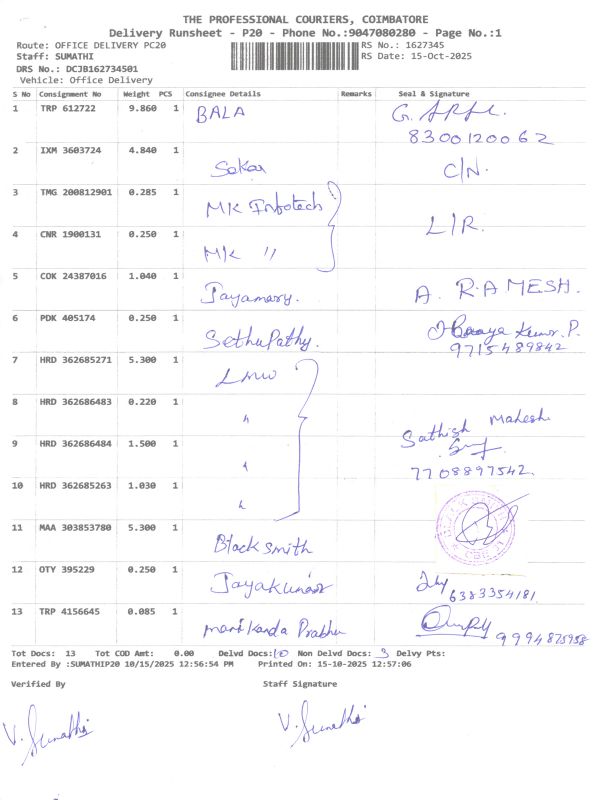 THE PROFESSIONAL COURIERS, COIMBATORE
Delivery Runsheet - P20 - Phone No.:9047080280 - Page No.:1
Route: OFFICE DELIVERY PC20 RS No.: 1627345
Staff: SUMATHI RS Date: 15-Oct-2025
DRS No.: DCJB162734501
Vehicle: Office Delivery
S No Consignment No Weight PCS Consignee Details Remarks Seal & Signature
1 TRP 612722 9.860 1 BALA G.
8300120062
2 IXM 3603724 4.840 1 Sekar C/N.
3 TMG 200812901 0.285 1 MK Infotech
L/R.
4 CNR 1900131 0.250 1 MK "
5 COK 24387016 1.040 1 Jayamary. A. RAMESH.
6 PDK 405174 0.250 1 Sethupathy. Kumar. P.
9715489842
7 HRD 362685271 5.300 1 LMW
8 HRD 362686483 0.220 1 "
Sathish Mahesh
9 HRD 362686484 1.500 1 "
7708897542.
10 HRD 362685263 1.030 1 "
11 MAA 303853780 5.300 1 Black smith
12 OTY 395229 0.250 1 Jayakumar
6383354181
13 TRP 4156645 0.085 1 Manikanda Prabhu
9994875958
Tot Docs: 13 Tot COD Amt: 0.00 Delvd Docs:10 Non Delvd Docs: 3 Delvy Pts:
Entered By :SUMATHIP20 10/15/2025 12:56:54 PM Printed On: 15-10-2025 12:57:06
Verified By Staff Signature
V. Sumathi V. Sumathi